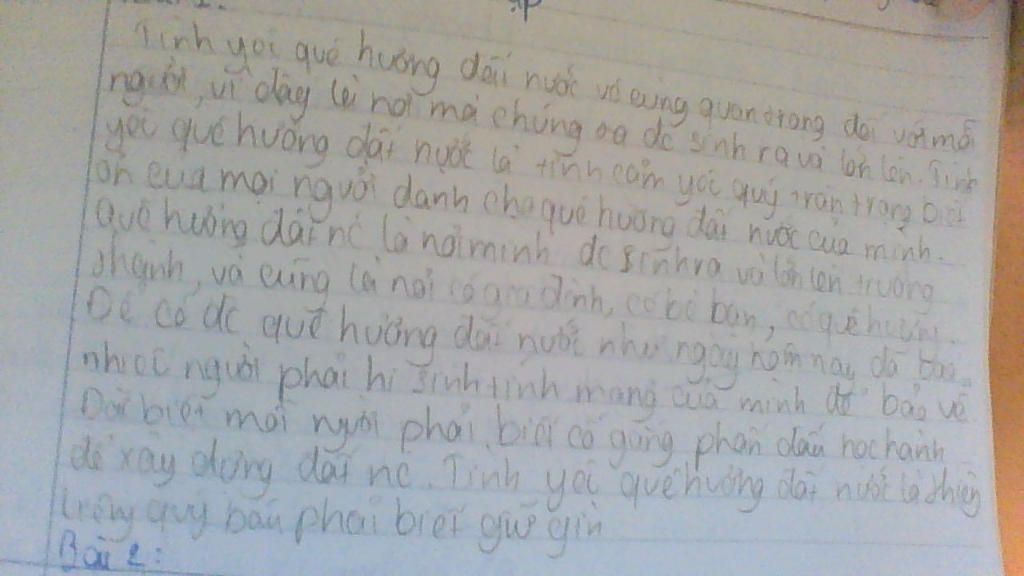 Tình yêu quê hương đất nước vô cùng quan trọng đối với mỗi
người, vì đây là nơi mà chúng ta đc sinh ra và lớn lên. Tình
yêu quê hương đất nước là tình cảm yêu quý trân trọng biết
ơn của mọi người danh cho quê hương đất nước của mình.
Quê hương đất nc là nơi mình đc sinh ra và lớn lên trưởng
thành, và cũng là nơi có gia đình, có bè bạn, có quê hương.
Để có đc quê hương đất nước như ngày hôm nay đã bao
nhiêu người phải hi sinh tính mạng của mình để bảo vệ.
mỗi người phải biết cố gắng phấn đấu học hành
để xây dựng đất nc. Tình yêu quê hương đất nước là thiêng
quý báu phải biết giữ gìn
Bài 2: